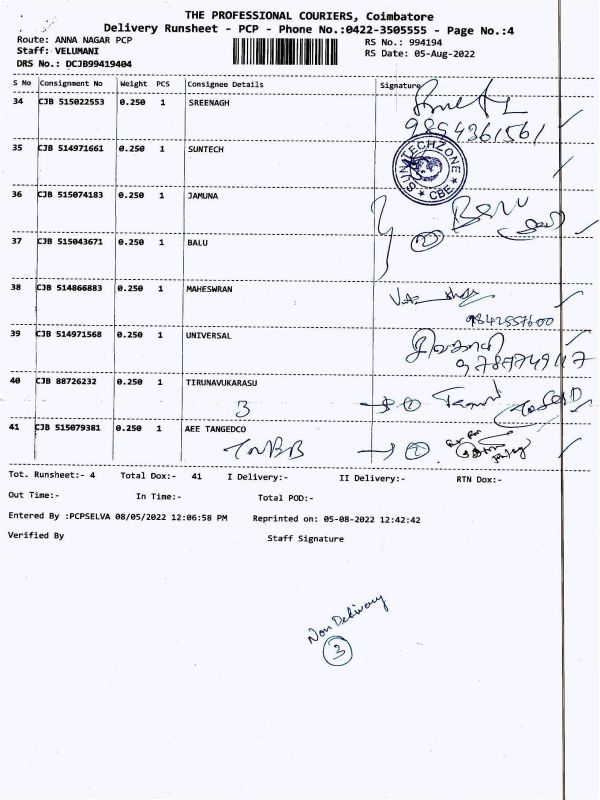 THE PROFESSIONAL COURIERS, Coimbatore
Delivery Runsheet - PCP - Phone No.:0422-3505555 - Page No.:4
Route: ANNA NAGAR PCP
RS No.: 994194
Staff: VELUMANI
RS Date: 05-Aug-2022
DRS No.: DCJB99419404
S No Consignment No Weight PCS Consignee Details Signature
34 CJB 515022553 0.250 1 SREENAGH
9894361561
35 CJB 514971661 0.250 1 SUNTECH
SUNATECHZONE ★ CBE ★
36 CJB 515074183 0.250 1 JAMUNA
37 CJB 515043671 0.250 1 BALU
2
38 CJB 514866883 0.250 1 MAHESWRAN
9842557600
39 CJB 514971568 0.250 1 UNIVERSAL
40 CJB 88726232 0.250 1 TIRUNAVUKARASU
3
41 CJB 515079381 0.250 1 AEE TANGEDCO
TNEB
Tot. Runsheet:- 4 Total Dox:- 41 I Delivery:- II Delivery:- RTN Dox:-
Out Time:- In Time:- Total POD:-
Entered By :PCPSELVA 08/05/2022 12:06:58 PM Reprinted on: 05-08-2022 12:42:42
Verified By Staff Signature
Non Delivery
3